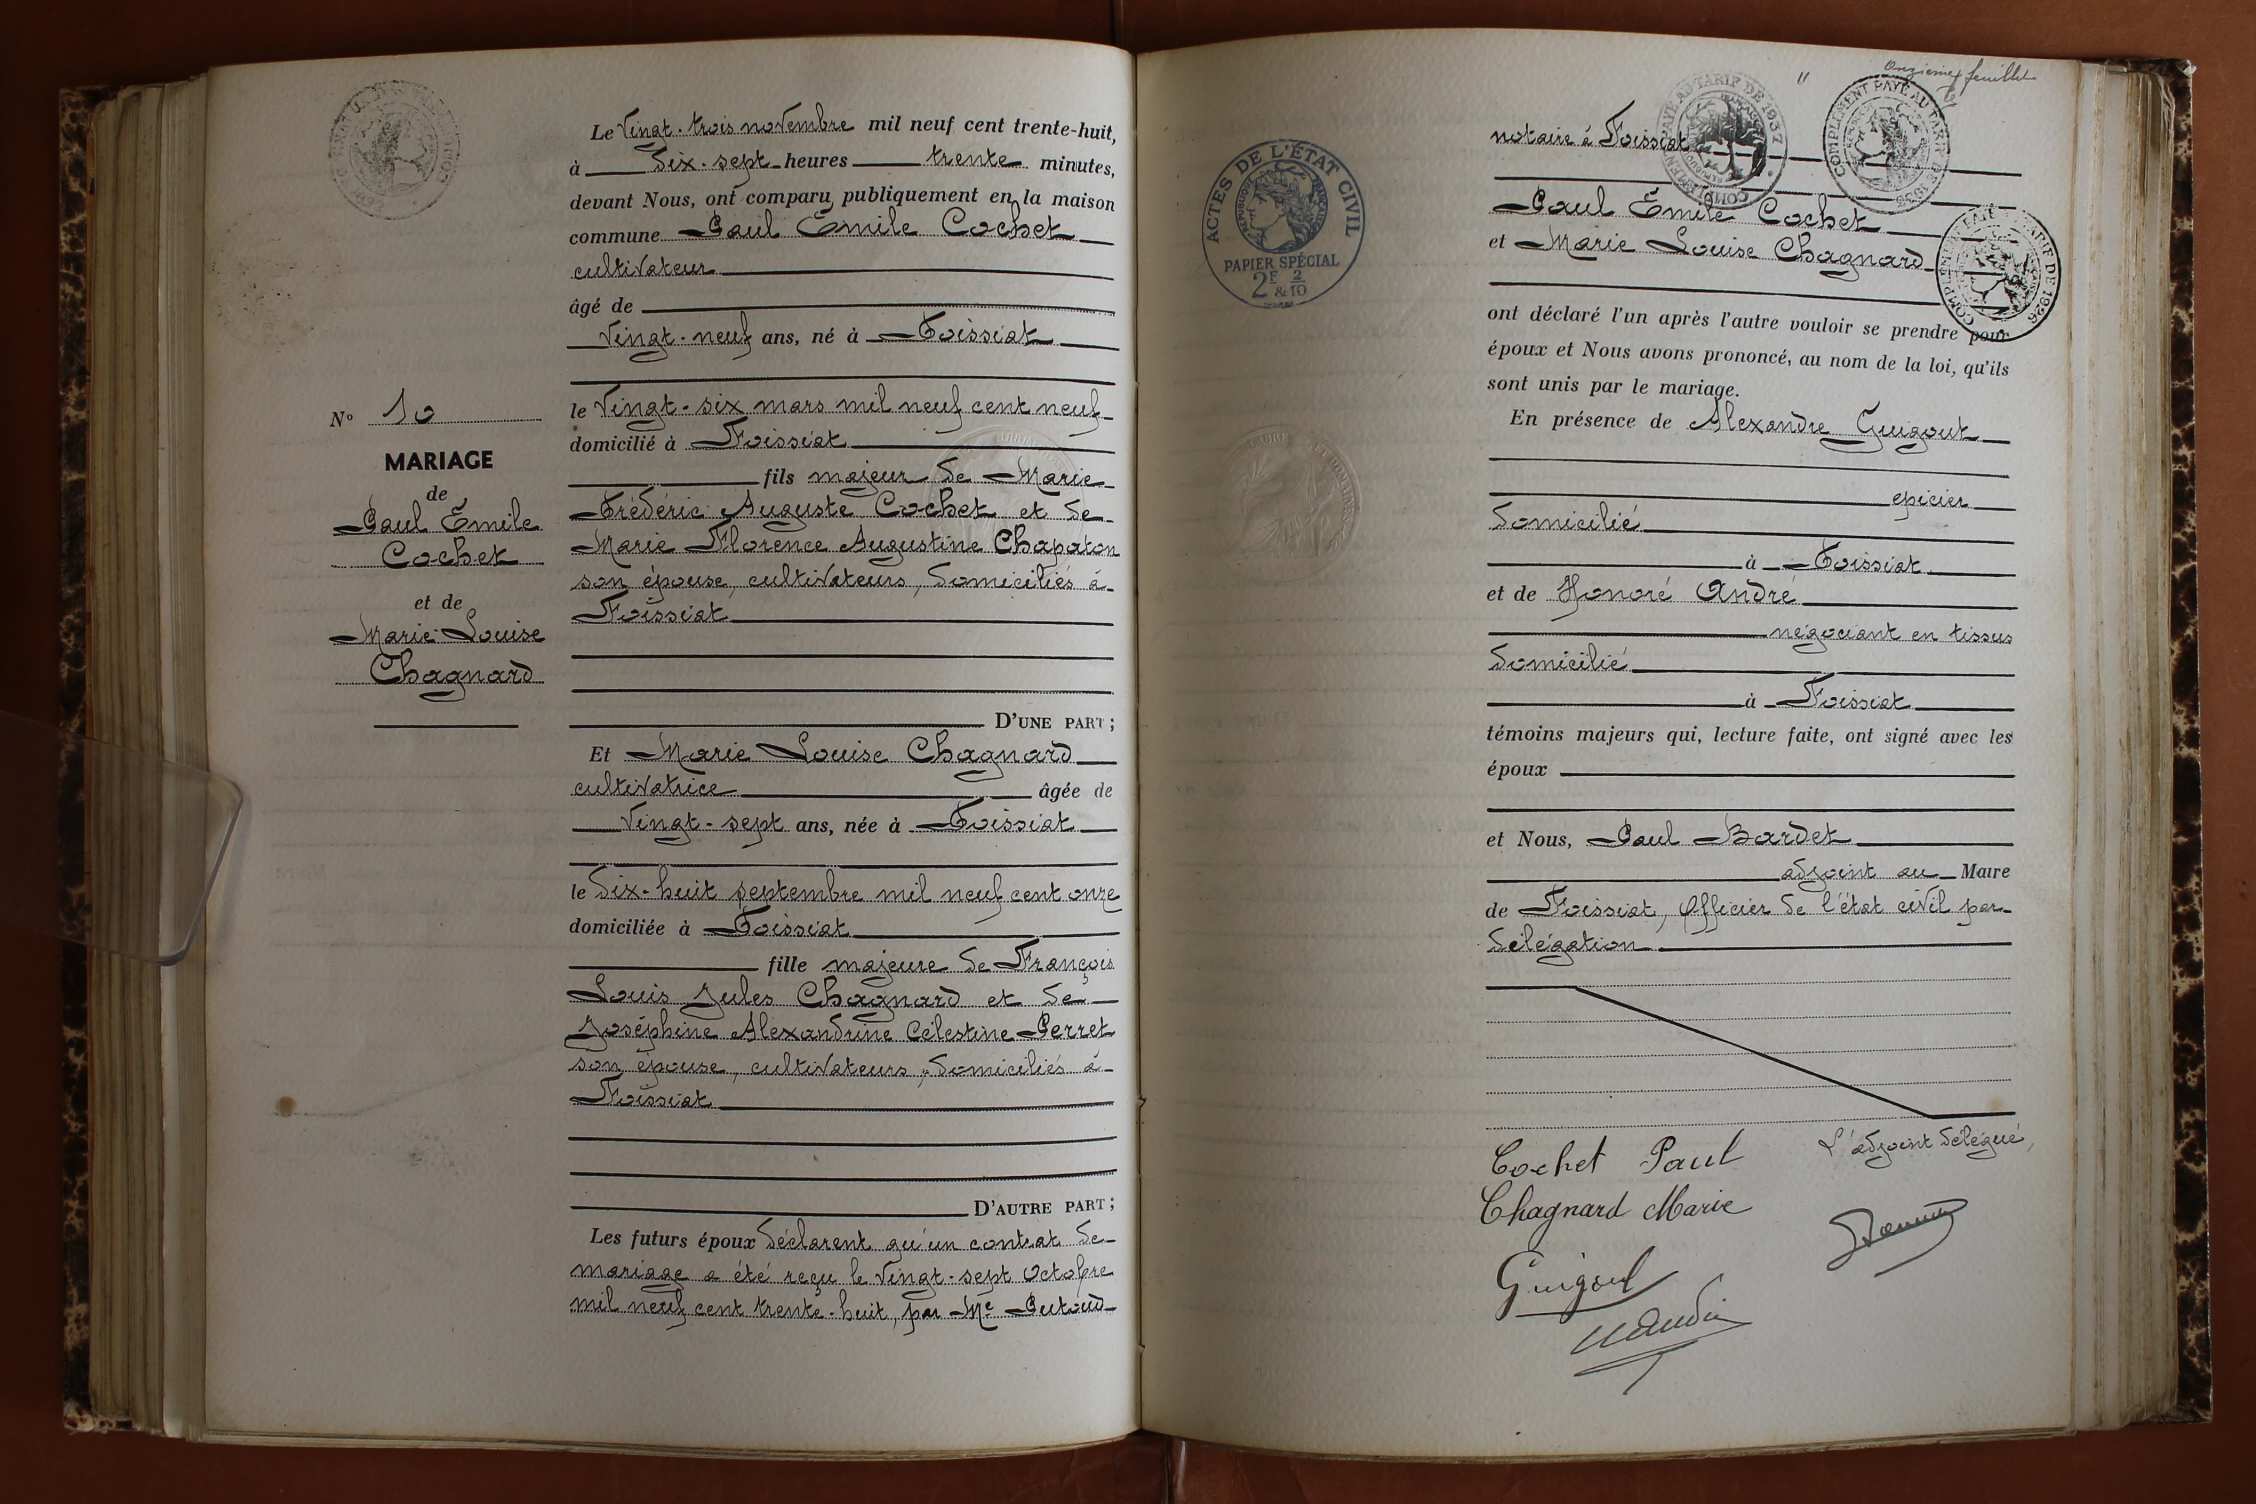 Le Vingt-trois novembre mil neuf cent trente-huit,
à dix-sept heures trente minutes,
devant Nous, ont comparu publiquement en la maison
commune Paul Emile Cochet
cultivateur
âgé de
Vingt-neuf ans, né à Foissiat
le Vingt-six mars mil neuf cent neuf
domicilié à Foissiat
fils majeur de Marie
Frédéric Auguste Cochet et de
Marie Florence Augustine Chapaton
son épouse, cultivateurs, domiciliés à
Foissiat
D'UNE PART;
N° 10
MARIAGE
de
Paul Emile
Cochet
et de
Marie Louise
Chagnard
Et Marie Louise Chagnard
cultivatrice âgée de
Vingt-sept ans, née à Foissiat
le dix-huit septembre mil neuf cent onze
domiciliée à Foissiat
fille majeure de François
Louis Jules Chagnard et de
Joséphine Alexandrine Célestine Perret
son épouse, cultivateurs, domiciliés à
Foissiat
D'AUTRE PART;
Les futurs époux déclarent qu'un contrat de
mariage a été reçu le vingt-sept octobre
mil neuf cent trente-huit, par Me
" onzième feuillet
notaire à Foissiat
COMPLÉMENT PAYÉ AU TARIF DE 1937
COMPLÉMENT PAYÉ AU TARIF DE 1935
TARIF DE 1926
ACTES DE L'ÉTAT CIVIL
RÉPUBLIQUE FRANÇAISE
PAPIER SPÉCIAL
2F & 2/10
Paul Emile Cochet
et Marie Louise Chagnard
ont déclaré l'un après l'autre vouloir se prendre pour
époux et Nous avons prononcé, au nom de la loi, qu'ils
sont unis par le mariage.
En présence de Alexandre Guigout
epicier
domicilié
à Foissiat
et de Honoré André
négociant en tissus
domicilié
à Foissiat
témoins majeurs qui, lecture faite, ont signé avec les
époux
et Nous, Paul Bardet
adjoint au Maire
de Foissiat, Officier de l'état civil par
délégation
Cochet Paul
L'adjoint délégué,
Chagnard Marie
Guigout